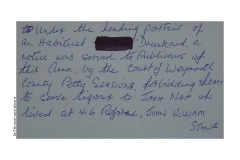 Under the heading portrait of
an Habitual Drunkard, a
notice was served to Publicans of
this Area, by the Court of Weymouth
County Petty Sessions, forbidding them
to serve liquor to Jack Not who
lived at 46 Reforne, John William
Stone